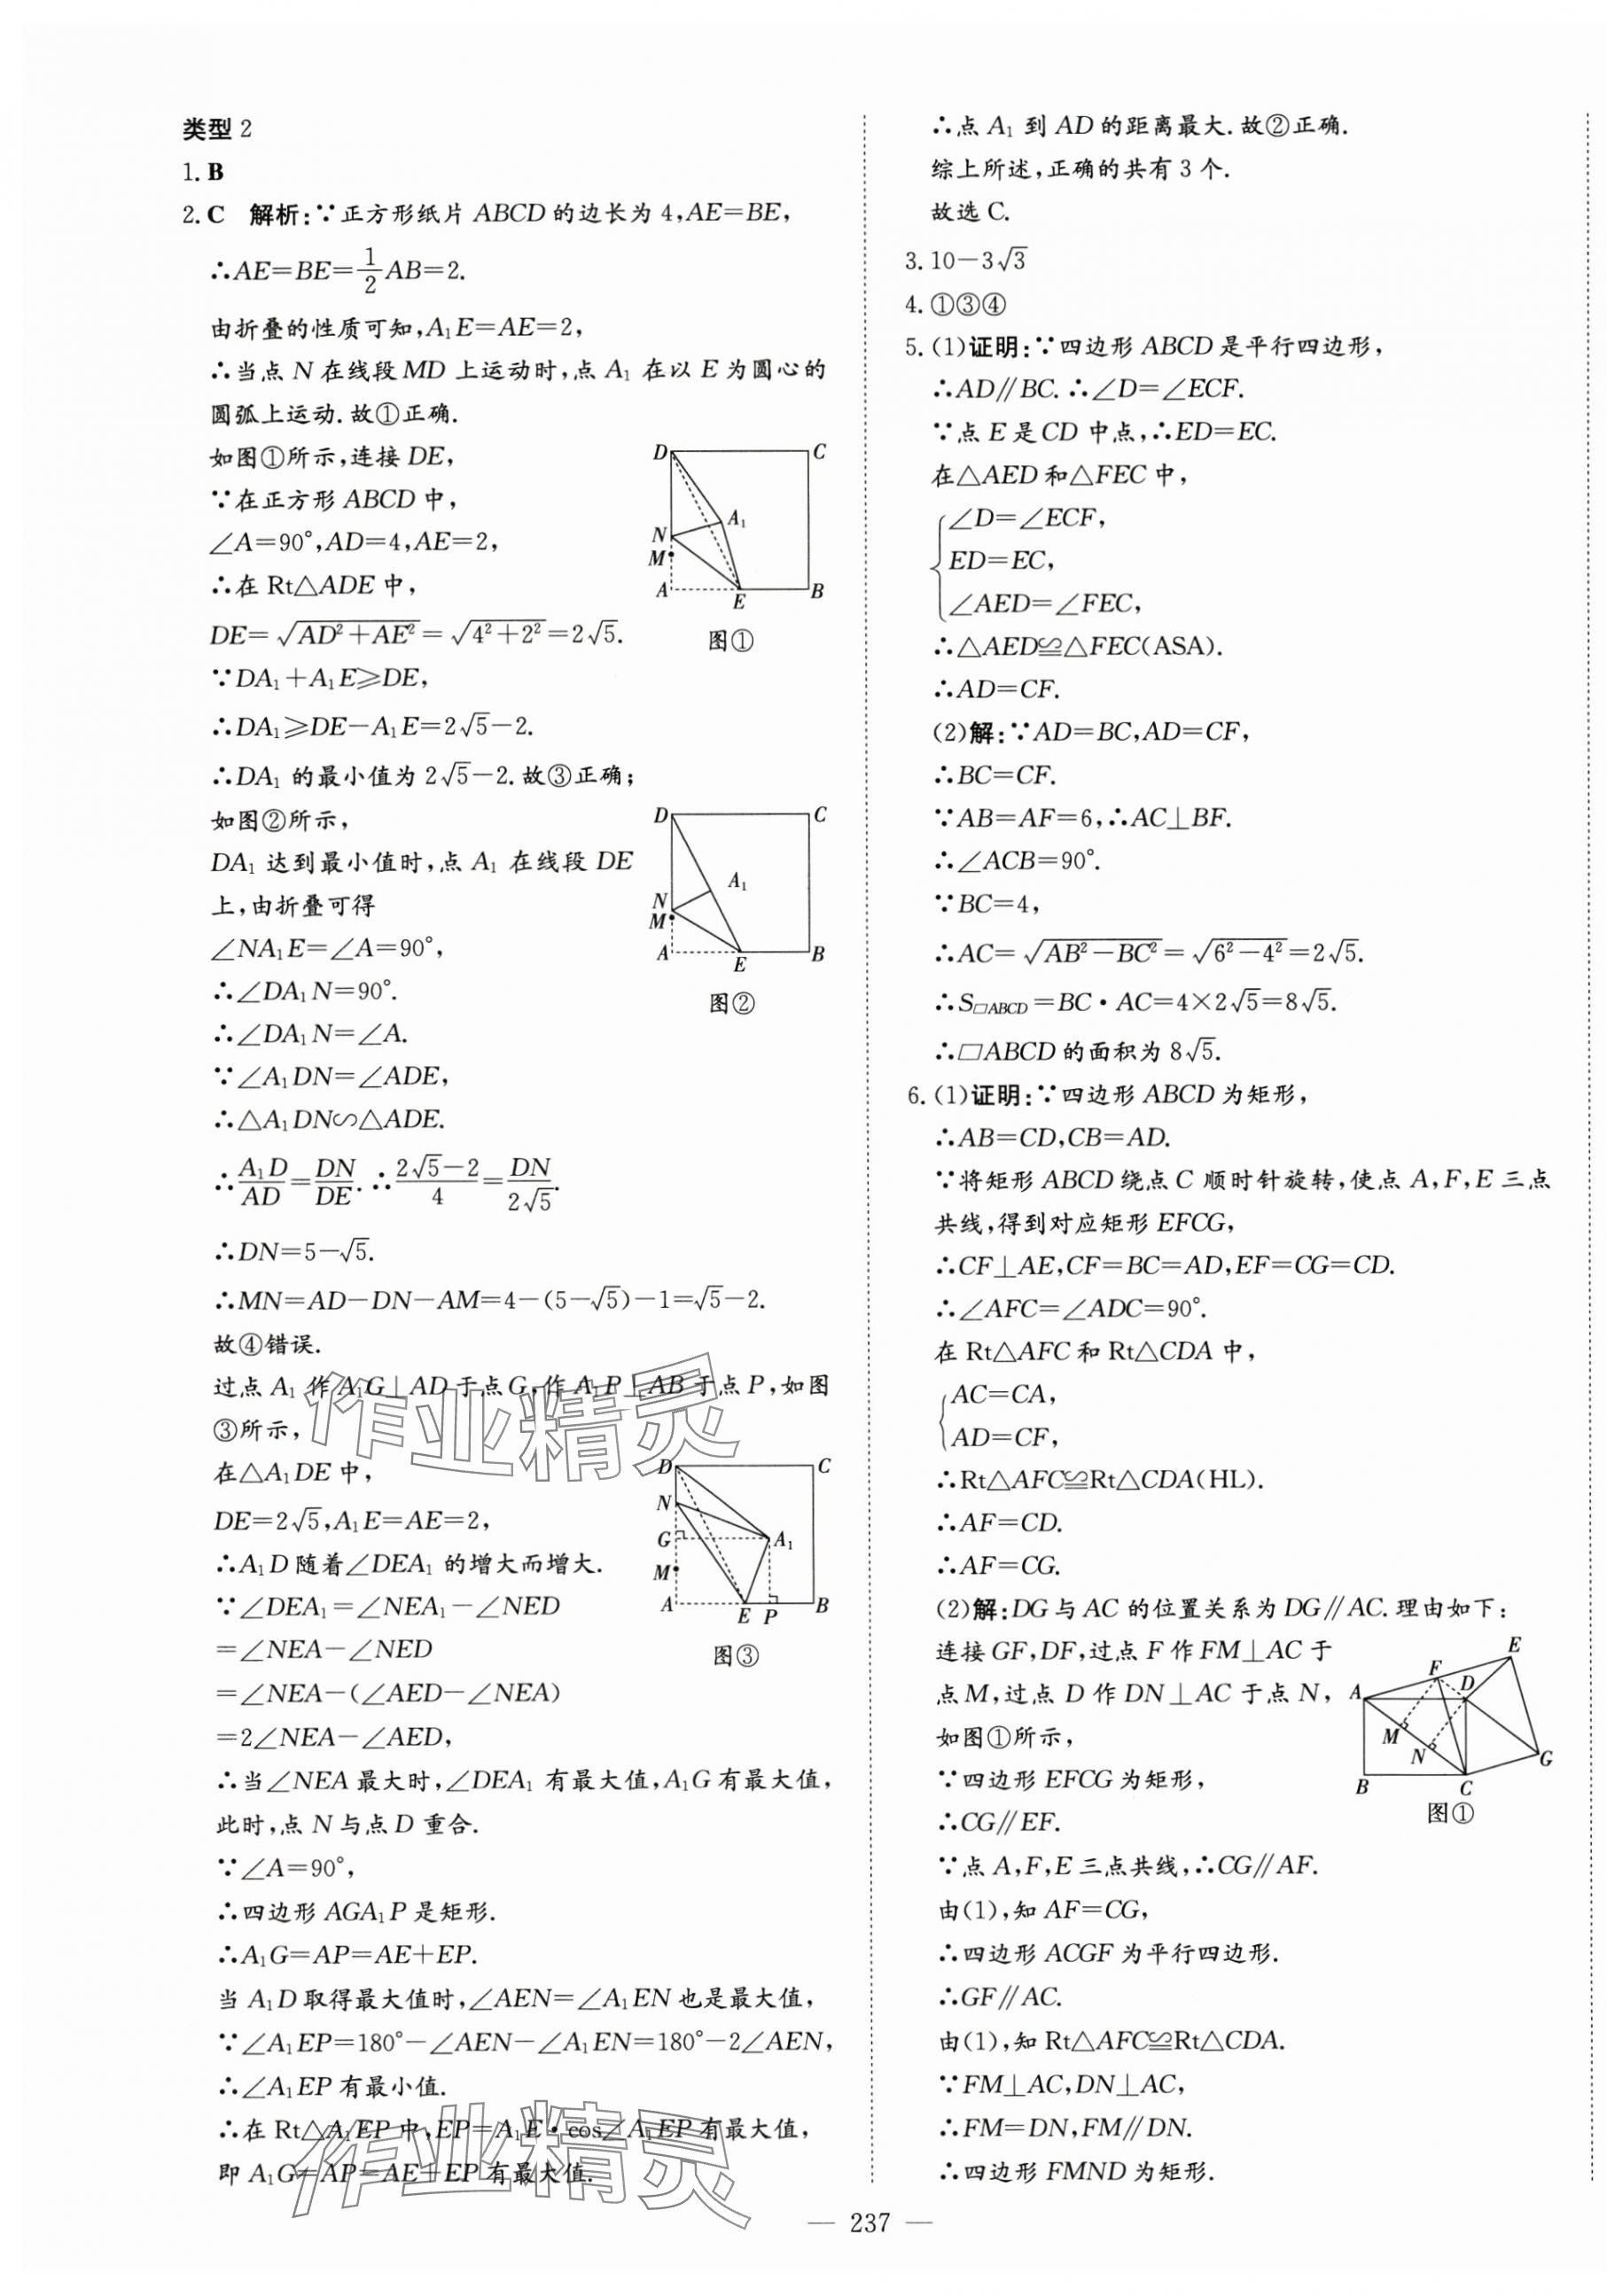 类型 2
1. B
2. C 解析:∵正方形纸片 ABCD 的边长为 4,AE=BE,
∴AE=BE=1/2 AB=2.
由折叠的性质可知,A₁E=AE=2,
∴当点 N 在线段 MD 上运动时,点 A₁ 在以 E 为圆心的
圆弧上运动.故①正确.
如图①所示,连接 DE,
∵在正方形 ABCD 中,
∠A=90°,AD=4,AE=2,
∴在 Rt△ADE 中,
DE=√(AD²+AE²)=√(4²+2²)=2√5.
∵DA₁+A₁E⩾DE,
∴DA₁⩾DE-A₁E=2√5-2.
∴DA₁ 的最小值为 2√5-2.故③正确;
D C A₁ N M A E B
图①
如图②所示,
DA₁ 达到最小值时,点 A₁ 在线段 DE
上,由折叠可得
∠NA₁E=∠A=90°,
∴∠DA₁N=90°.
∴∠DA₁N=∠A.
∵∠A₁DN=∠ADE,
∴△A₁DN∽△ADE.
D C A₁ N M A E B
图②
∴A₁D/AD=DN/DE.∴(2√5-2)/4=DN/(2√5).
∴DN=5-√5.
∴MN=AD-DN-AM=4-(5-√5)-1=√5-2.
故④错误.
过点 A₁ 作 A₁G⊥AD 于点 G,作 A₁P⊥AB 于点 P,如图
③所示,
在△A₁DE 中,
DE=2√5,A₁E=AE=2,
∴A₁D 随着∠DEA₁ 的增大而增大.
∵∠DEA₁=∠NEA₁-∠NED
=∠NEA-∠NED
=∠NEA-(∠AED-∠NEA)
=2∠NEA-∠AED,
D C N G A₁ M A E P B
图③
∴当∠NEA 最大时,∠DEA₁ 有最大值,A₁G 有最大值,
此时,点 N 与点 D 重合.
∵∠A=90°,
∴四边形 AGA₁P 是矩形.
∴A₁G=AP=AE+EP.
当 A₁D 取得最大值时,∠AEN=∠A₁EN 也是最大值,
∵∠A₁EP=180°-∠AEN-∠A₁EN=180°-2∠AEN,
∴∠A₁EP 有最小值.
∴在 Rt△A₁EP 中,EP=A₁E·cos∠A₁EP 有最大值,
即 A₁G=AP=AE+EP 有最大值.
∴点 A₁ 到 AD 的距离最大.故②正确.
综上所述,正确的共有 3 个.
故选 C.
3. 10-3√3
4. ①③④
5. (1)证明:∵四边形 ABCD 是平行四边形,
∴AD∥BC.∴∠D=∠ECF.
∵点 E 是 CD 中点,∴ED=EC.
在△AED 和△FEC 中,
∠D=∠ECF,
ED=EC,
∠AED=∠FEC,
∴△AED≌△FEC(ASA).
∴AD=CF.
(2)解:∵AD=BC,AD=CF,
∴BC=CF.
∵AB=AF=6,∴AC⊥BF.
∴∠ACB=90°.
∵BC=4,
∴AC=√(AB²-BC²)=√(6²-4²)=2√5.
∴S▱ABCD=BC·AC=4×2√5=8√5.
∴▱ABCD 的面积为 8√5.
6. (1)证明:∵四边形 ABCD 为矩形,
∴AB=CD,CB=AD.
∵将矩形 ABCD 绕点 C 顺时针旋转,使点 A,F,E 三点
共线,得到对应矩形 EFCG,
∴CF⊥AE,CF=BC=AD,EF=CG=CD.
∴∠AFC=∠ADC=90°.
在 Rt△AFC 和 Rt△CDA 中,
AC=CA,
AD=CF,
∴Rt△AFC≌Rt△CDA(HL).
∴AF=CD.
∴AF=CG.
(2)解:DG 与 AC 的位置关系为 DG∥AC.理由如下:
连接 GF,DF,过点 F 作 FM⊥AC 于
点 M,过点 D 作 DN⊥AC 于点 N,
如图①所示,
∵四边形 EFCG 为矩形,
∴CG∥EF.
E F D A M N G B C
图①
∵点 A,F,E 三点共线,∴CG∥AF.
由(1),知 AF=CG,
∴四边形 ACGF 为平行四边形.
∴GF∥AC.
由(1),知 Rt△AFC≌Rt△CDA.
∵FM⊥AC,DN⊥AC,
∴FM=DN,FM∥DN.
∴四边形 FMND 为矩形.
作业精灵
作业精灵
— 237 —